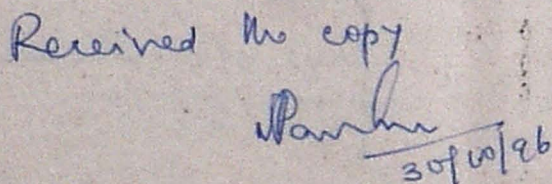 Received the copy
30/10/96